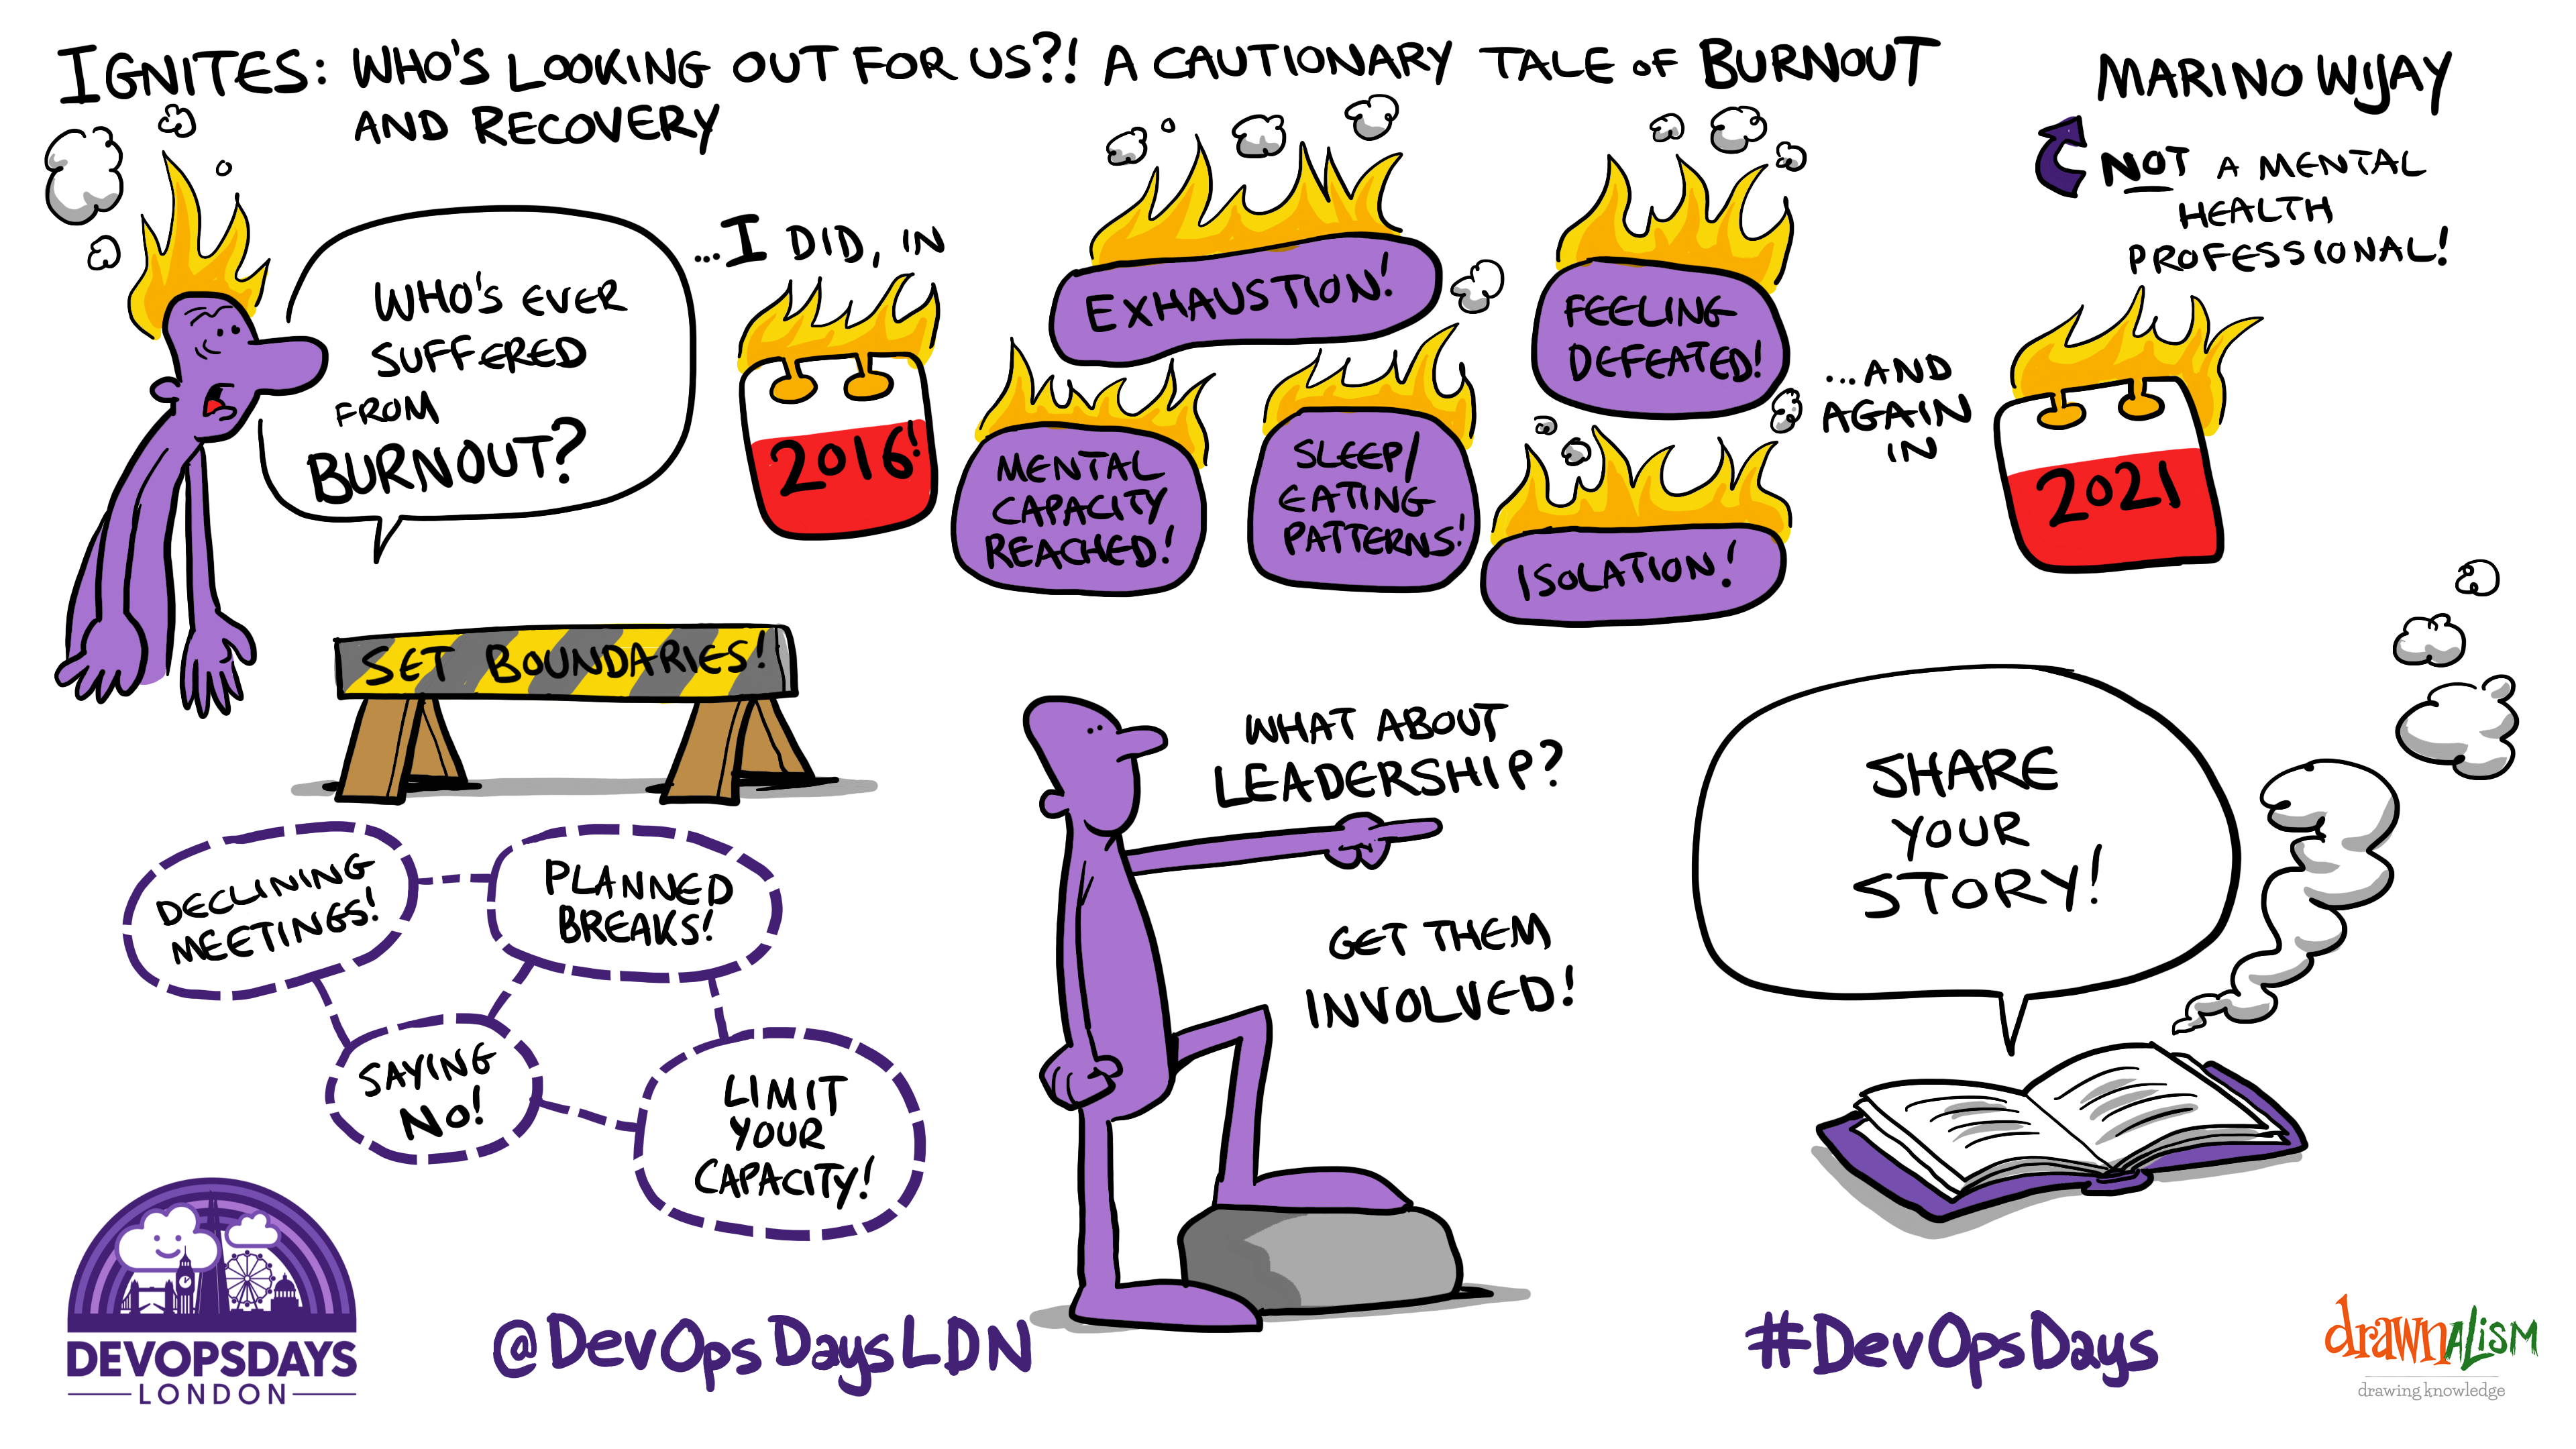 IGNITES: WHO'S LOOKING OUT FOR US?! A CAUTIONARY TALE OF BURNOUT
AND RECOVERY
MARINO WIJAY
NOT A MENTAL
HEALTH
PROFESSIONAL!
WHO'S EVER
SUFFERED
FROM
BURNOUT?
...I DID, IN
2016!
EXHAUSTION!
MENTAL
CAPACITY
REACHED!
SLEEP/
EATING
PATTERNS!
FEELING
DEFEATED!
ISOLATION!
...AND
AGAIN
IN
2021
SET BOUNDARIES!
DECLINING
MEETINGS!
PLANNED
BREAKS!
SAYING
NO!
LIMIT
YOUR
CAPACITY!
WHAT ABOUT
LEADERSHIP?
GET THEM
INVOLVED!
SHARE
YOUR
STORY!
DEVOPSDAYS
LONDON
@DevOpsDaysLDN
#DevOpsDays
drawnalism
drawing knowledge